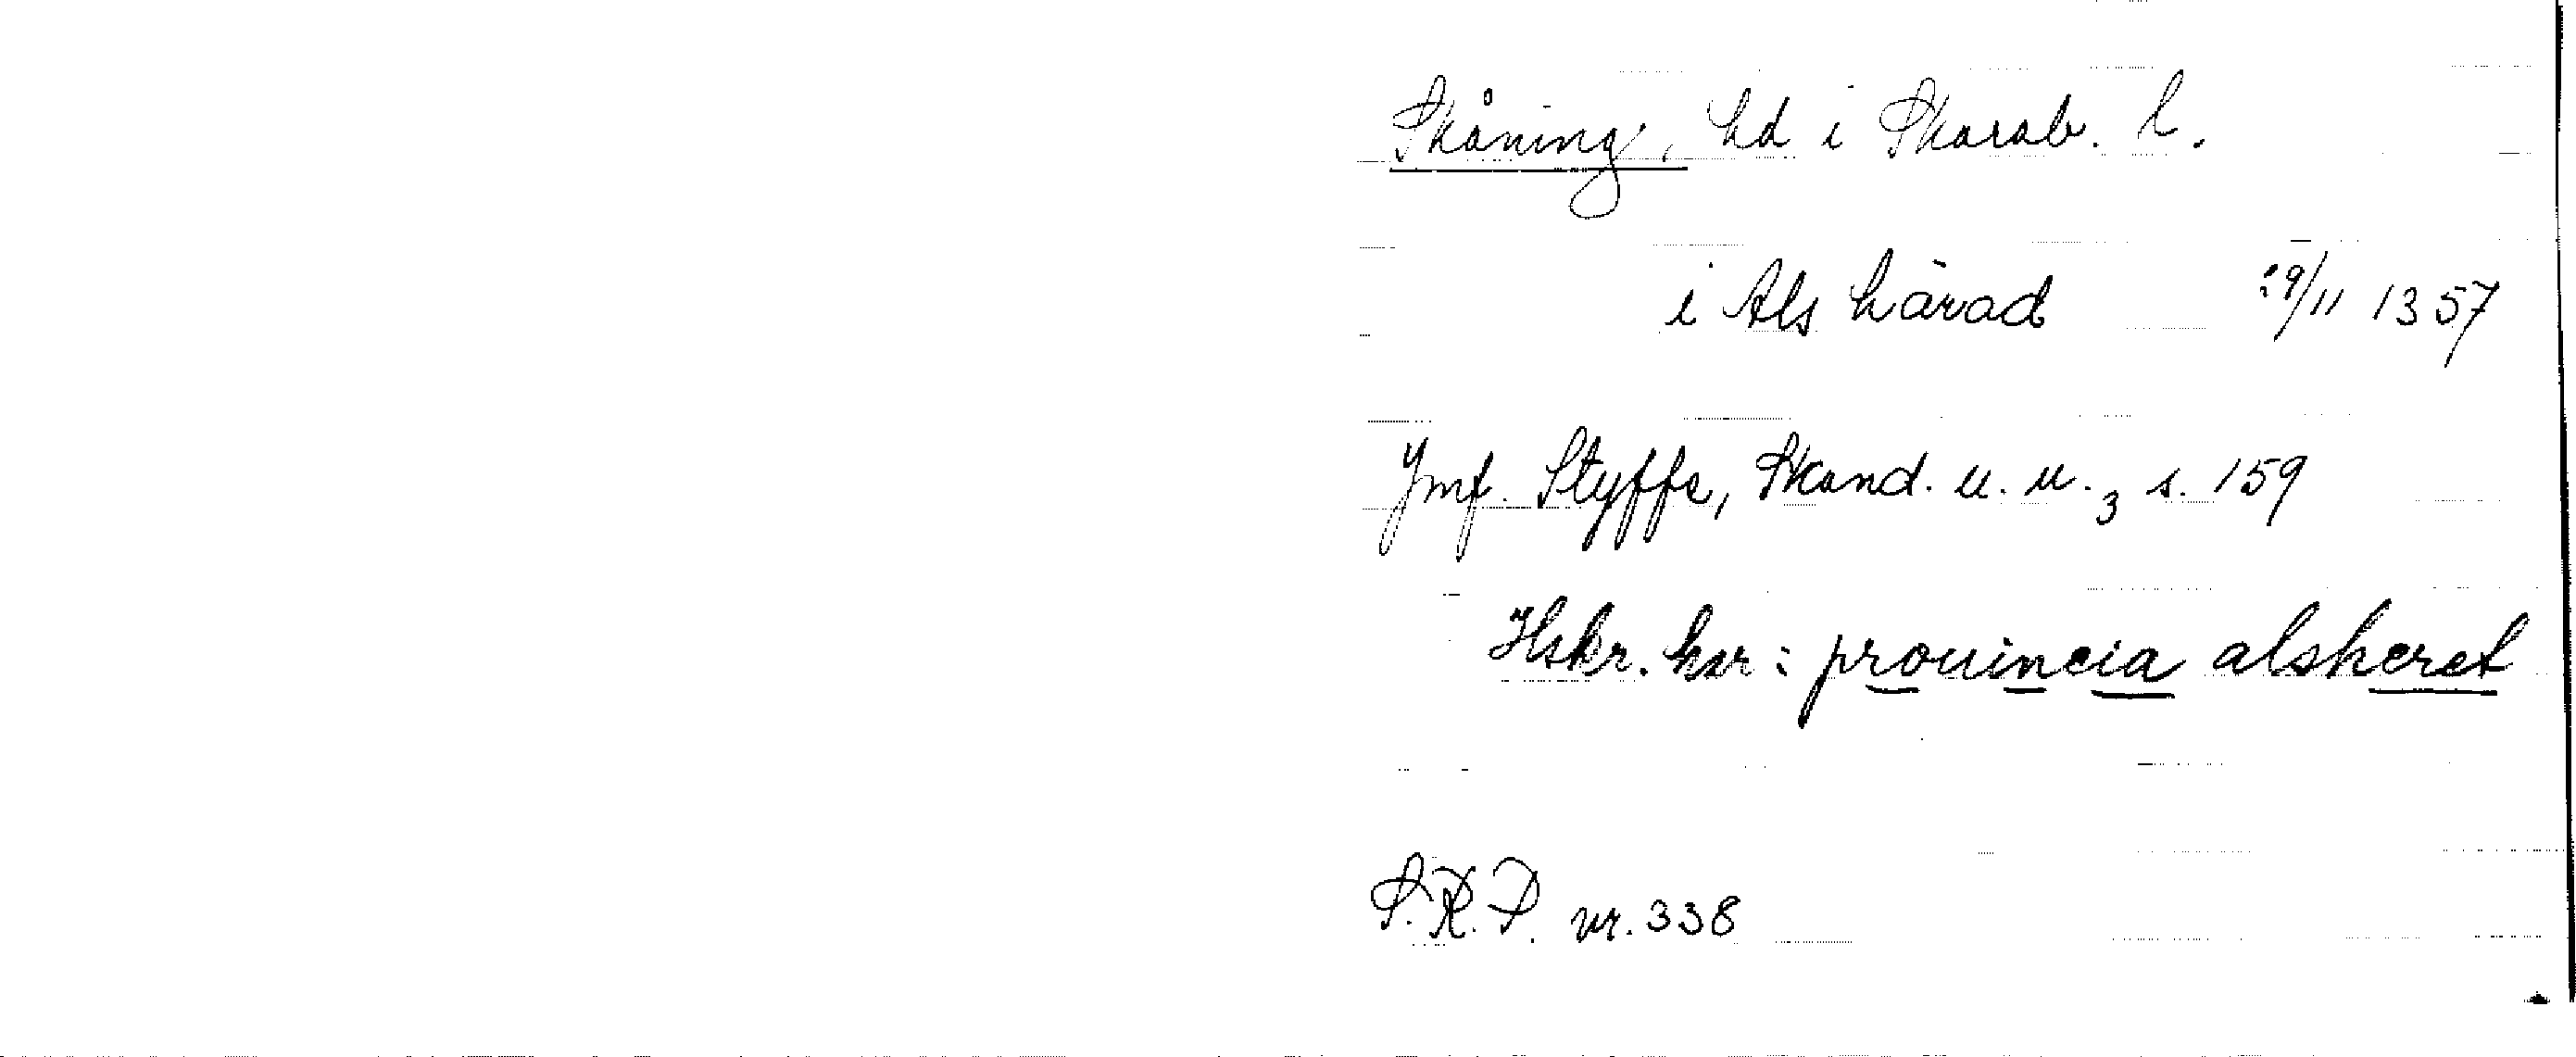 Skåning, hd i Skarab. l.
i Als härad 29/11 1357
Jmf. Styffe, Skand. u. u. 3 s. 159
Hskr. har: prouincia alsheret
S.R.P. nr. 338